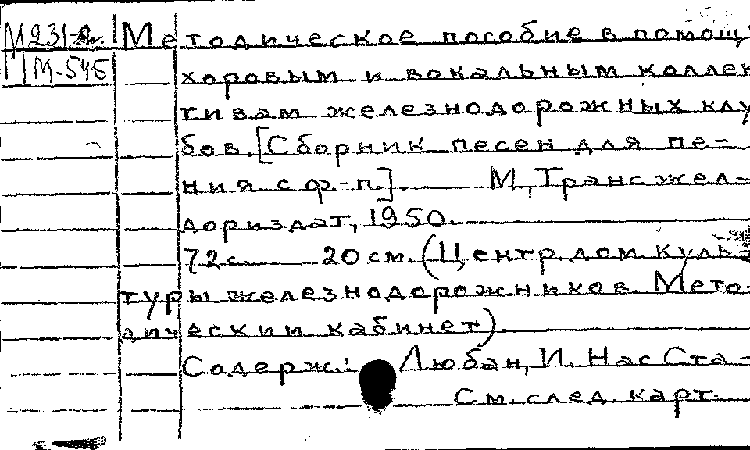 М231 Методическое пособие в помощь
ПМ-545 хоровым и вокальным коллек
тивам железнодорожных клу
бов. [Сборник песен для пе-
ния с ф.-п.]. М, Трансжел-
дориздат, 1950.
72 с. 20 см. (Центр. дом куль-
туры железнодорожников. Мето-
дический кабинет).
Содерж.: Любан, И. Нас Ста-
См. след. карт.